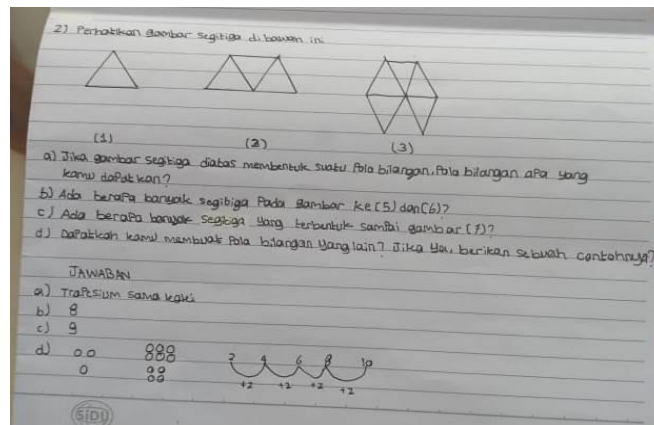 2) Perhatikan gambar segitiga dibawah ini
(1) (2) (3)
a) Jika gambar segitiga diatas membentuk suatu Pola bilangan, Pola bilangan apa yang
kamu dapatkan?
b) Ada berapa banyak segitiga Pada gambar ke (5) dan (6)?
c) Ada berapa banyak segitiga yang terbentuk sampai gambar (7)?
d) Dapatkah kamu membuat Pola bilangan yang lain? Jika Ya, berikan sebuah contohnya?
JAWABAN
a) Trapesium sama kaki
b) 8
c) 9
d) 2 4 6 8 10
+2 +2 +2 +2
SIDU